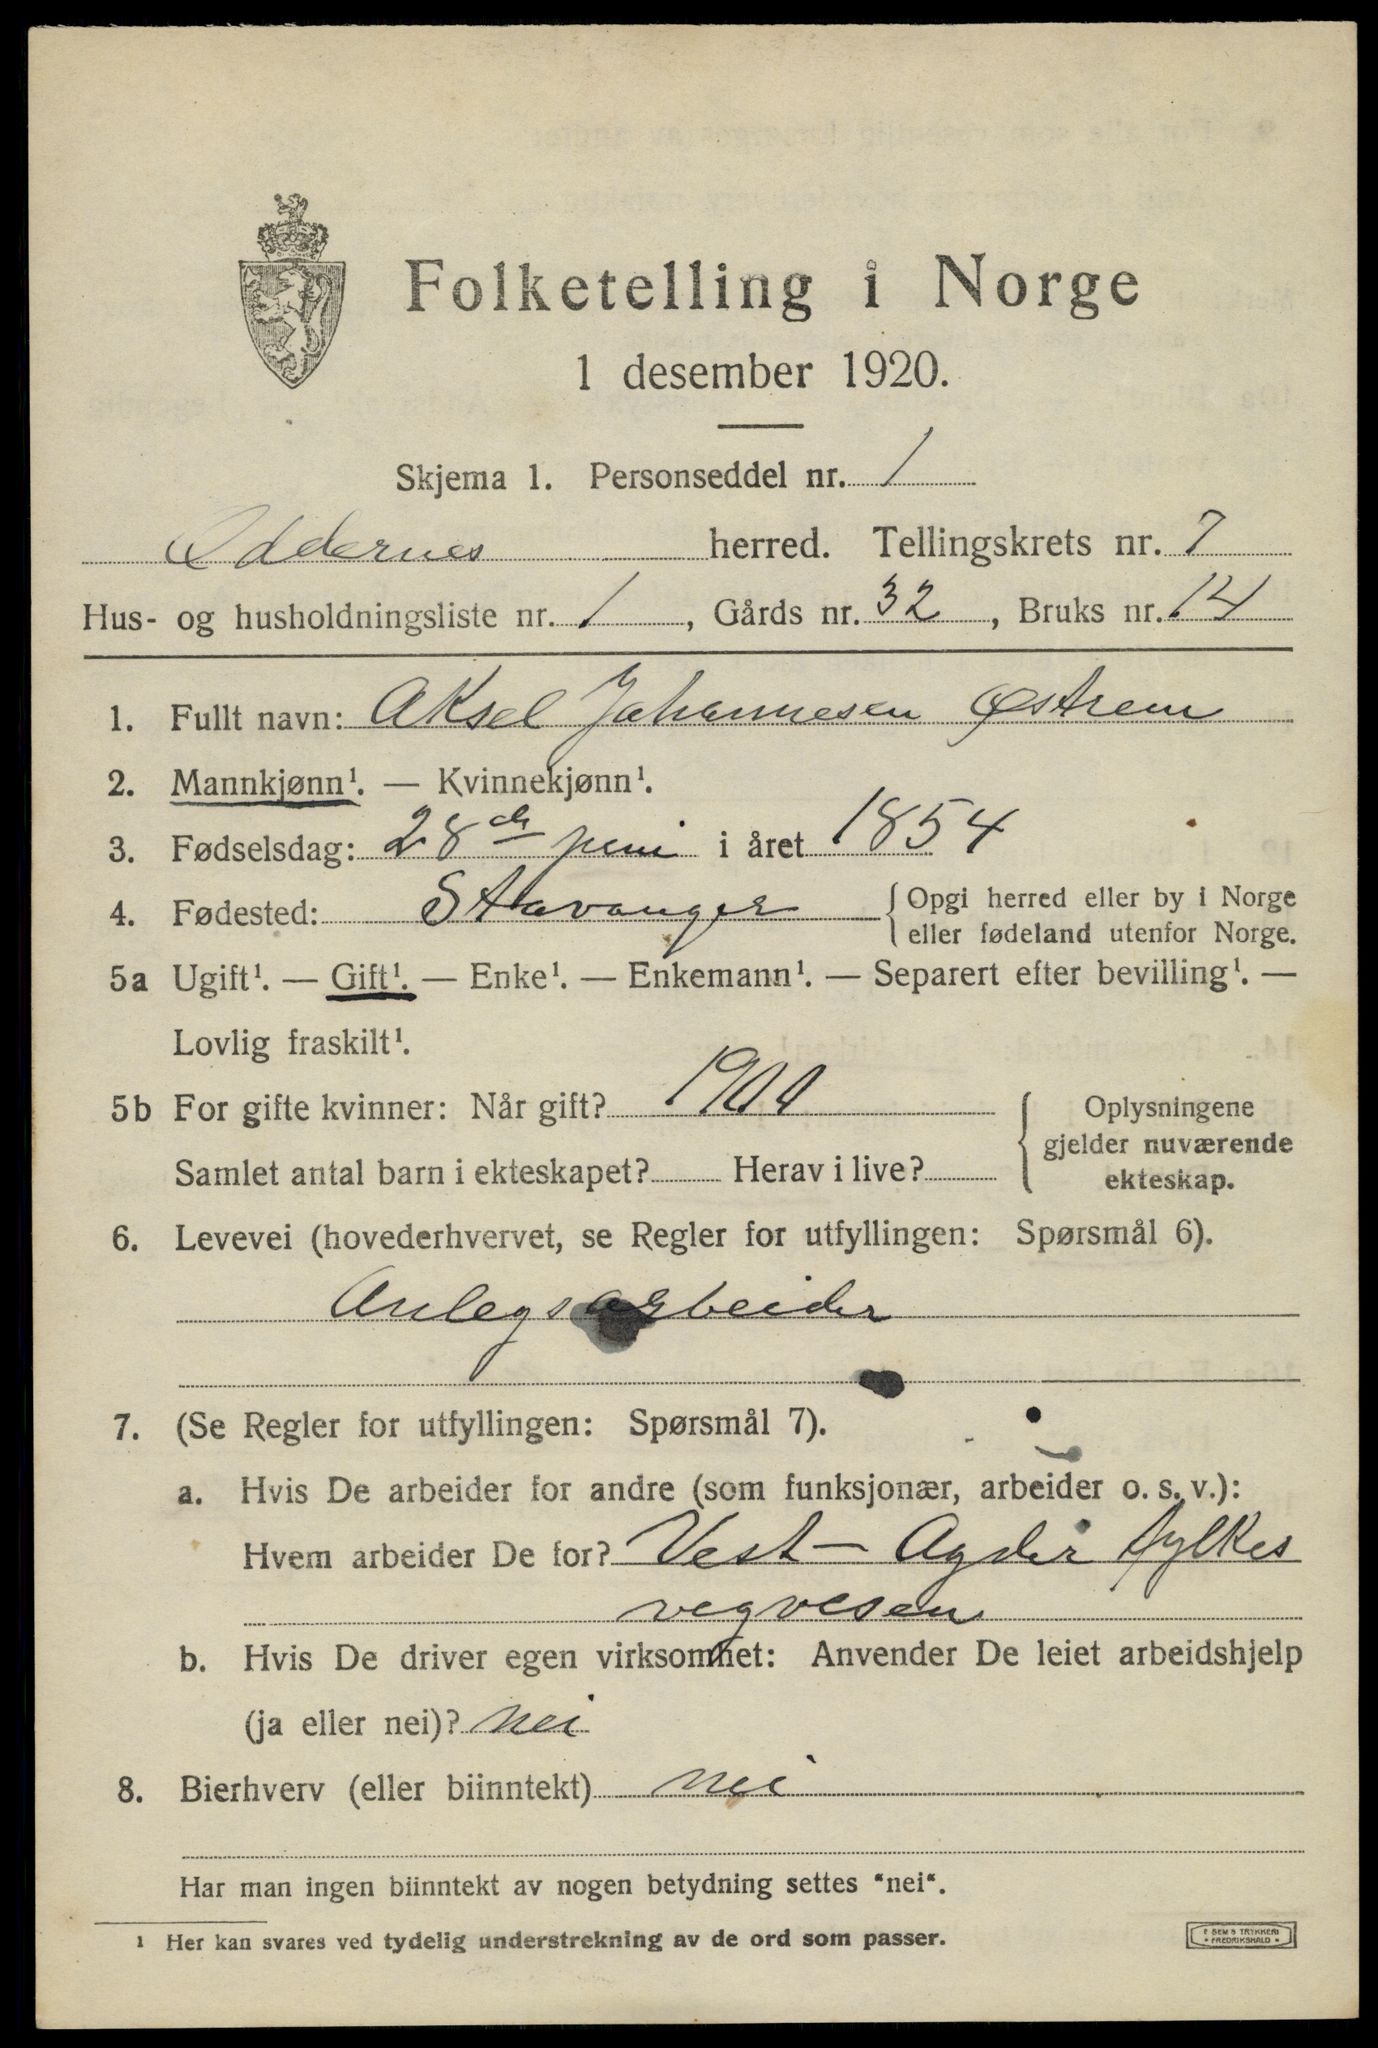 Folketelling i Norge
1 desember 1920.
Skjema 1. Personseddel nr. 1
Oddernes herred. Tellingskrets nr. 7
Hus- og husholdningsliste nr. 1, Gårds nr. 32, Bruks nr. 14
1. Fullt navn: Aksel Johannesen Østrem
2. Mannkjønn¹. — Kvinnekjønn¹.
3. Fødselsdag: 28de juni i året 1854
4. Fødested: Stavanger { Opgi herred eller by i Norge
eller fødeland utenfor Norge.
5a Ugift¹. — Gift¹. — Enke¹. — Enkemann¹. — Separert efter bevilling¹. —
Lovlig fraskilt¹.
5b For gifte kvinner: Når gift? 1900
Samlet antal barn i ekteskapet? Herav i live?
{ Oplysningene
gjelder nuværende
ekteskap.
6. Levevei (hovederhvervet, se Regler for utfyllingen: Spørsmål 6).
Anlegsarbeider
7. (Se Regler for utfyllingen: Spørsmål 7).
a. Hvis De arbeider for andre (som funksjonær, arbeider o. s. v.):
Hvem arbeider De for? Vest-Agder fylkes
vegvesen
b. Hvis De driver egen virksomhet: Anvender De leiet arbeidshjelp
(ja eller nei)? nei
8. Bierhverv (eller biinntekt) nei
Har man ingen biinntekt av nogen betydning settes "nei".
¹ Her kan svares ved tydelig understrekning av de ord som passer.
SEM'S TRYKKERI
• FREDRIKSHALD •